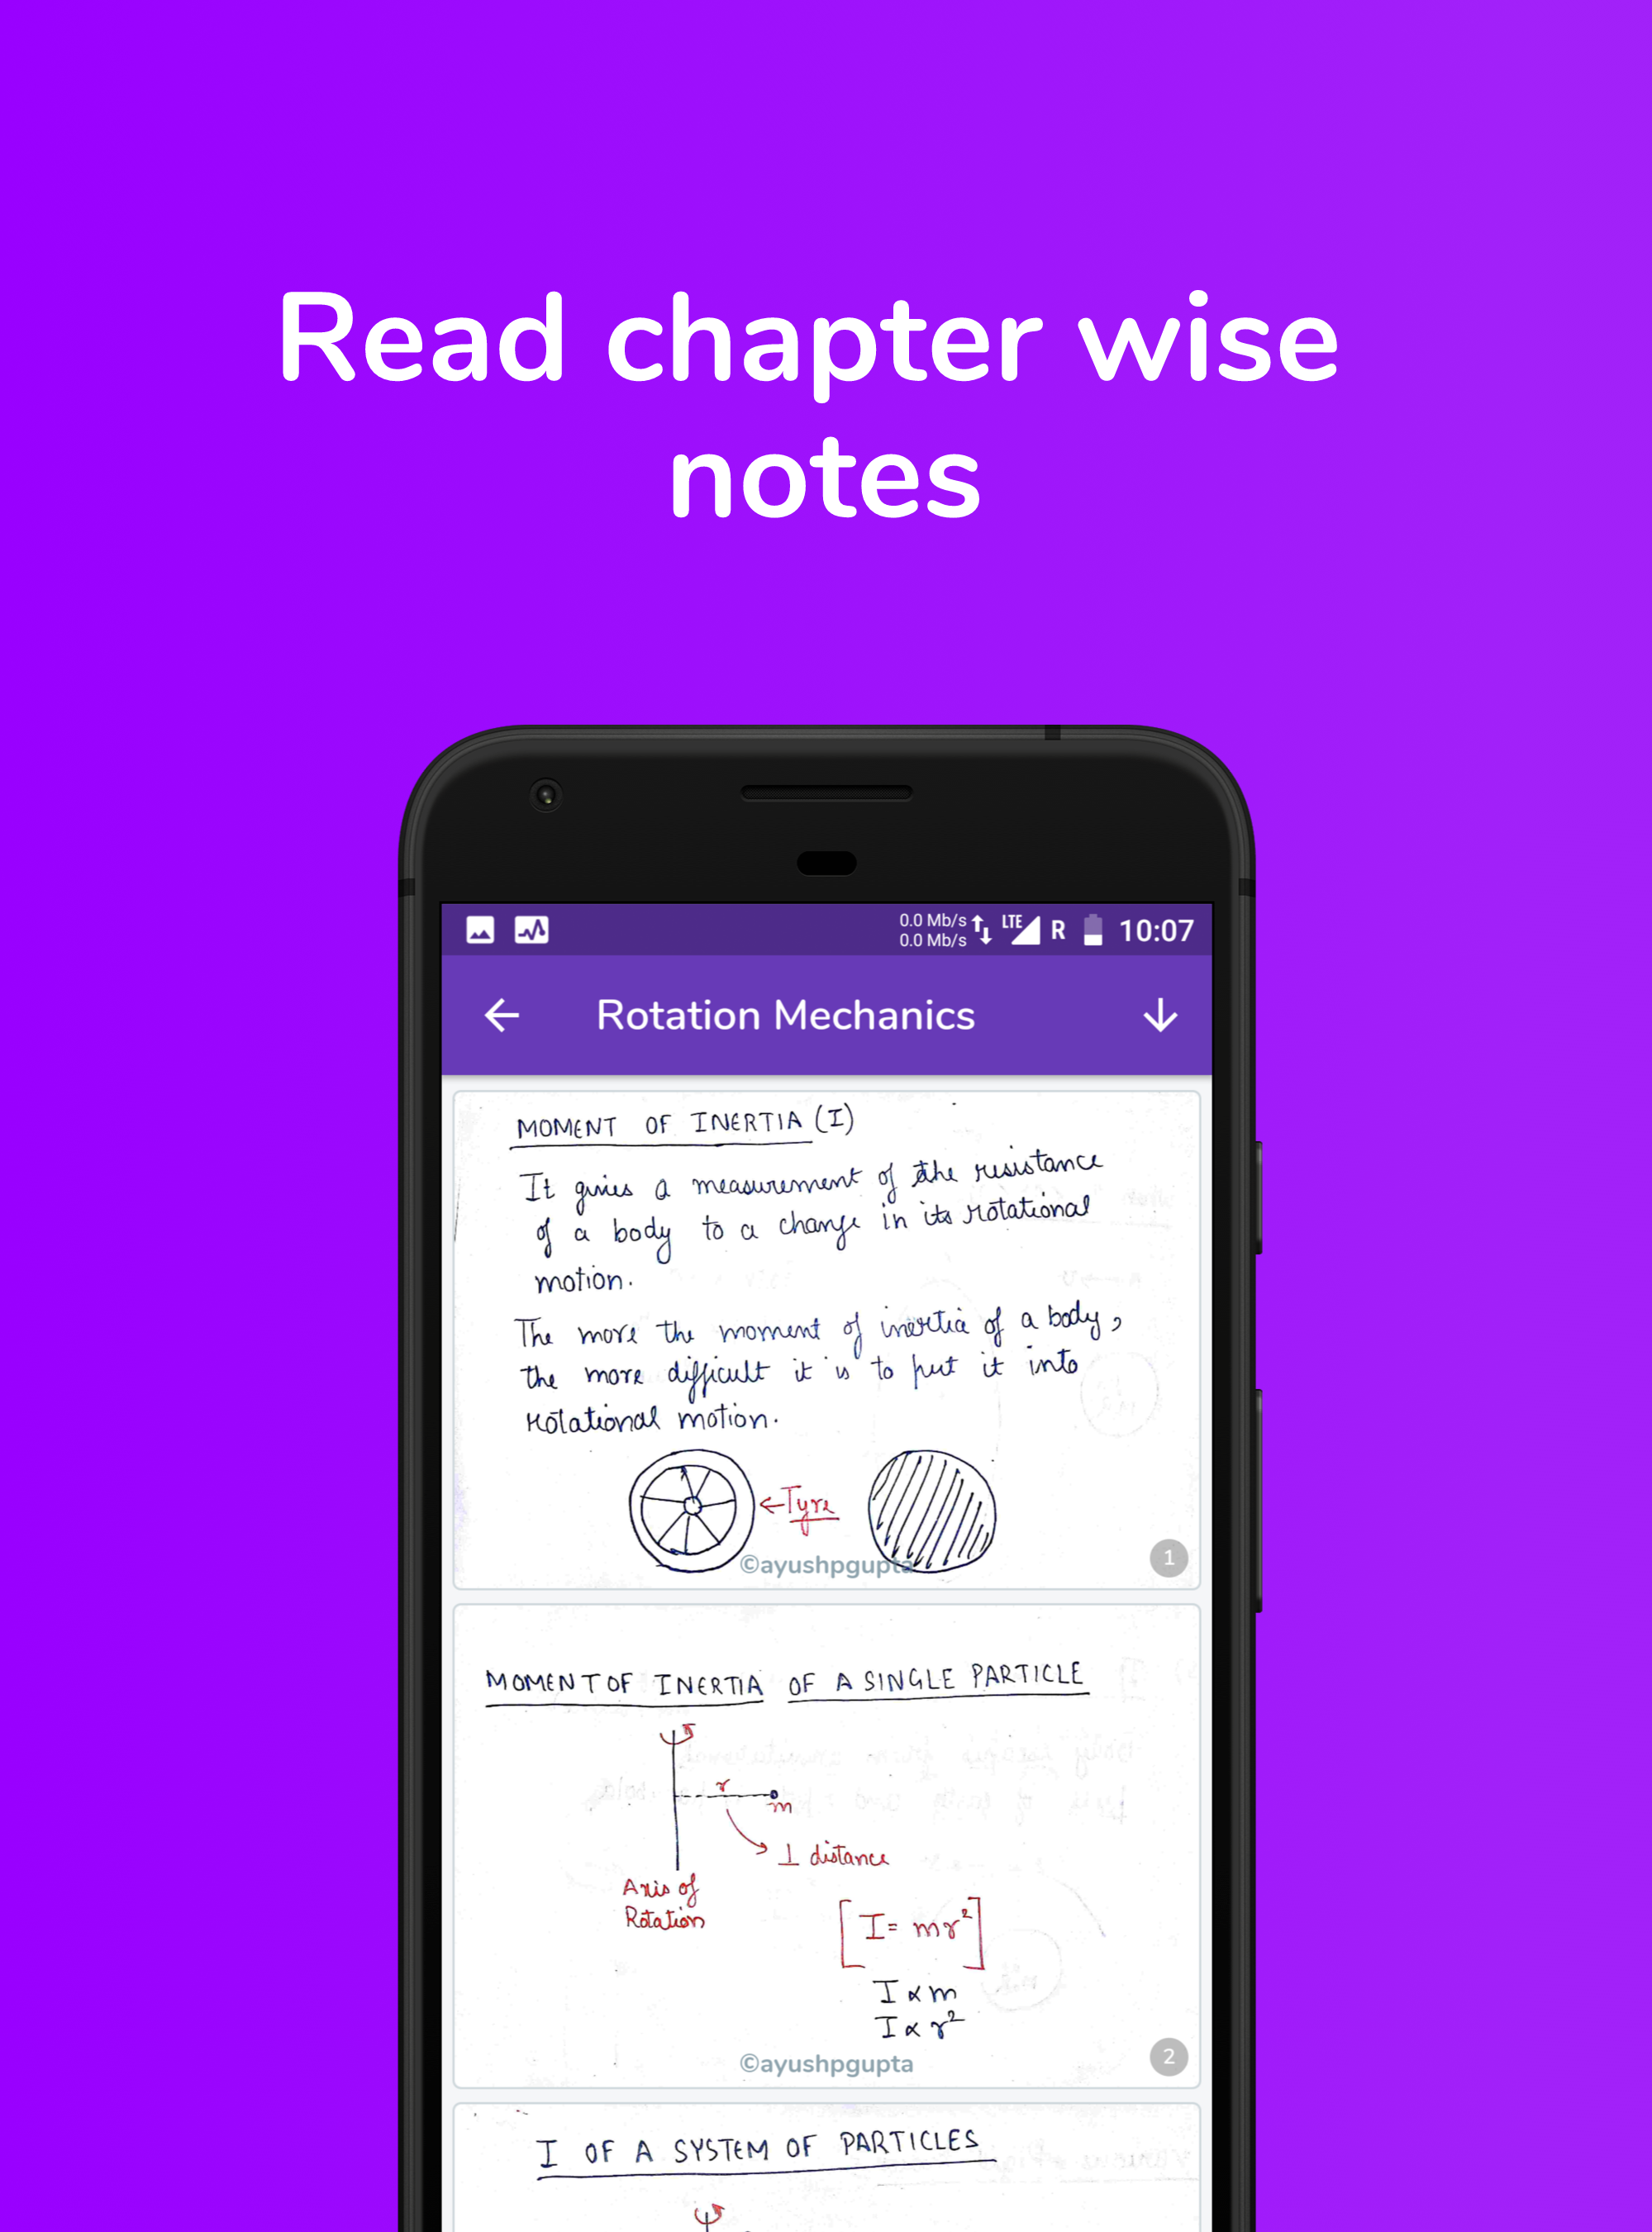 Read chapter wise
notes
0.0 Mb/s
0.0 Mb/s
LTE
R
10:07
Rotation Mechanics
MOMENT OF INERTIA (I)
It gives a measurement of the resistance
of a body to a change in its rotational
motion.
The more the moment of inertia of a body,
the more difficult it is to put it into
rotational motion.
←Tyre
©ayushpgupta
1
MOMENT OF INERTIA OF A SINGLE PARTICLE
r
m
⊥ distance
Axis of
Rotation
[I = mr²]
I ∝ m
I ∝ r²
©ayushpgupta
2
I OF A SYSTEM OF PARTICLES